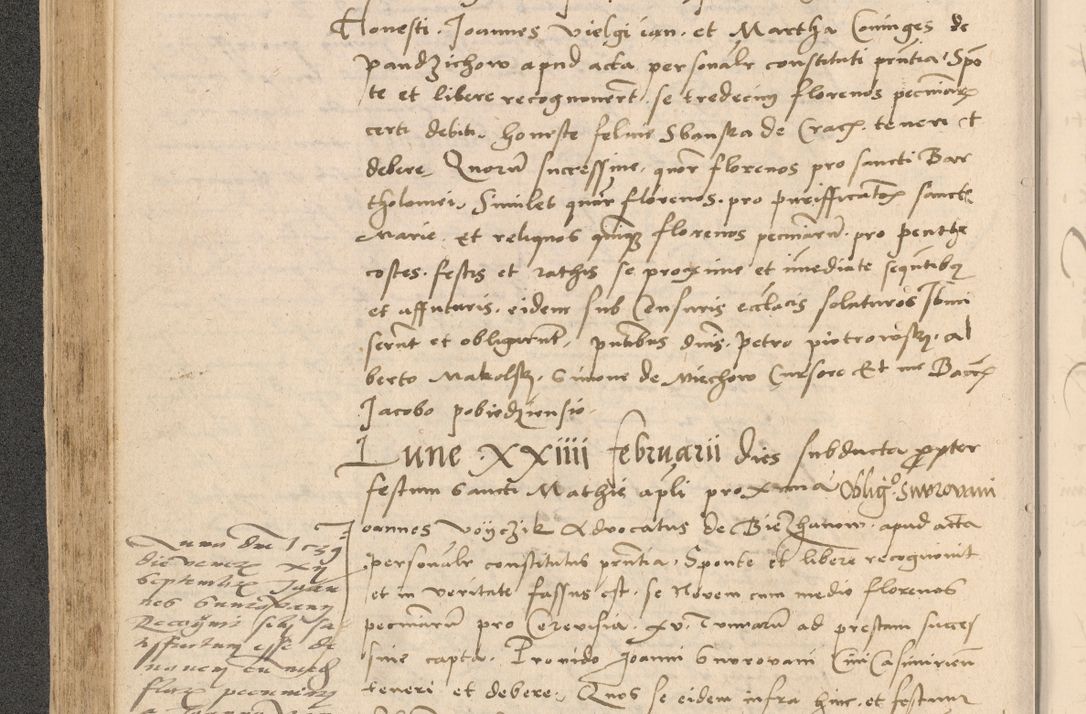 Honesti Joannes Vielgi ian et Martha Coninges de
Pandzichow apud acta personalr constituti prntia Spo
te et libere recognouert se tredecim florenos pecuniarz
certi debiti honeste felicis Sbanska de Crac teneri et
debere Quoru successiue quor florenos pro sancti Bar
tholomei Similet quor florenos pro purifficatoe sancte
Marie et reliquos quinqz florenos pecuniaru pro penthe
costes festis et rathis se proxime et imediate sequtibq
et affuturis eidem sub Censuris eccliacis soluturos
serut et obligarunt pntibus dnis Petro piotrowski al
berto Makolski Simone de Miechow Cursore Et me Bacc
Jacobo pobiedziensis
Lune XXIIII februarii Dies subducta propter
festum Sancti Mathie apli proxima Obligo Surowani
Joannes Voyczik Advocatus de Biezhanow apud acta
personalr constitutus prntia Sponte et libere recognouit
et in veritate fassus est se Novem cum medio florenos
pecuniaru pro Cerevisia xv ad prestam succes
siue capta Provido Joanni Surowani Ciui Casimirien
teneri et debere Quos se eidem infra hinc et festum
Anno Dni 1539
die veneris xij
Septembris Joan
nes Surowany
Recogni sibi sa
tisfactum esse de
nouem cu med
flor pecuniarz